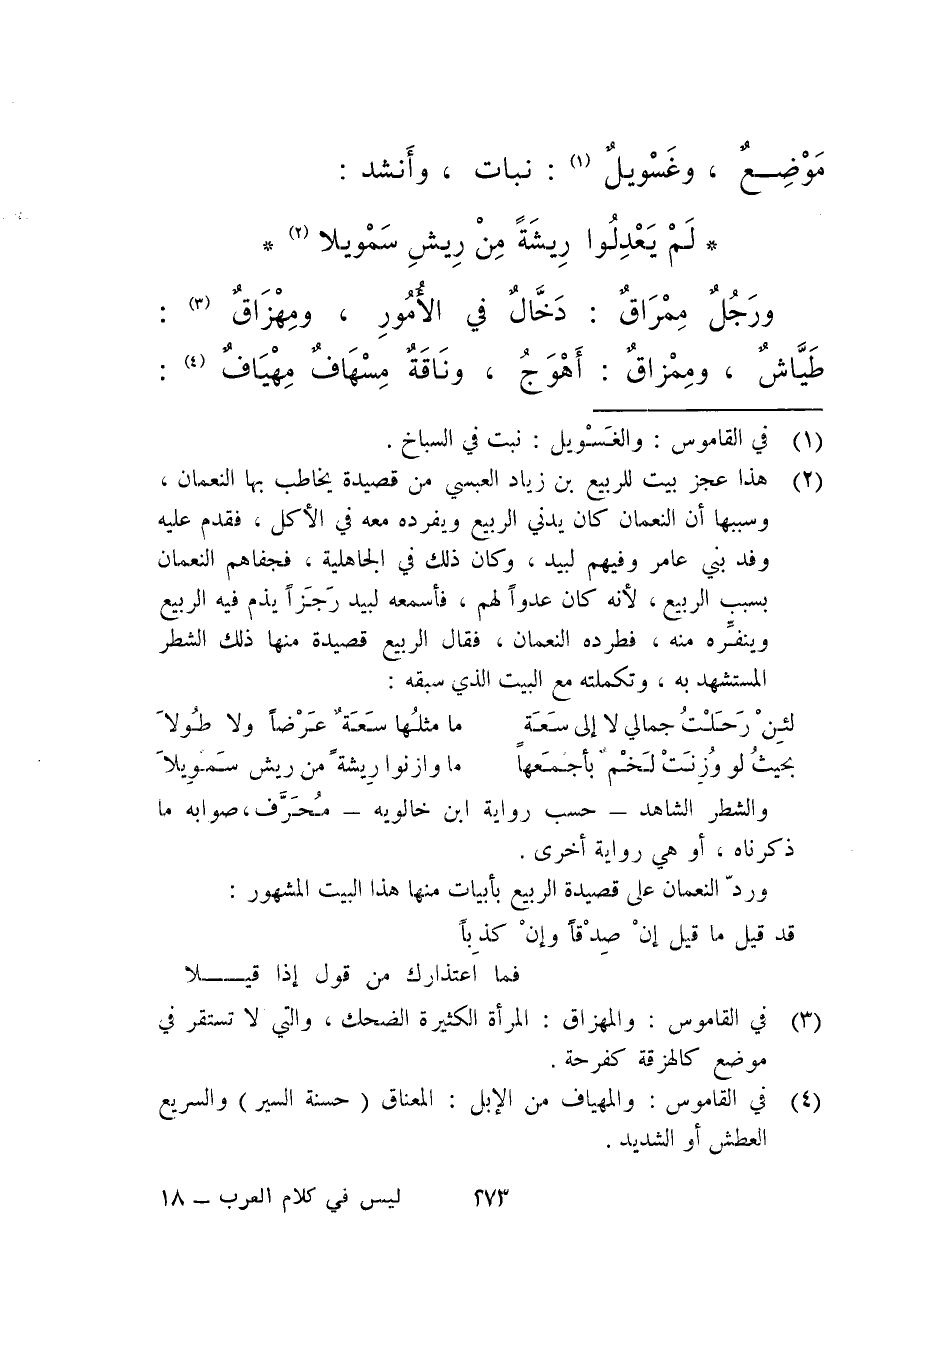 مَوْضِـعٌ ، وغَسْويلٌ (١) : نبات ، وأَنشد :
* لَمْ يَعْدِلُوا رِيشَةً مِنْ رِيشِ سَمْويلا (٢) *
ورَجُلٌ مِمْرَاقٌ : دَخَّالٌ في الأُمُورِ ، ومِهْزَاقٌ (٣) :
طَيَّاشٌ ، ومِمْزاقٌ : أَهْوَجُ ، ونَاقَةٌ مِسْهَافٌ مِهْيَافٌ (٤) :
(١) في القاموس : والغَسْويل : نبت في السباخ .
(٢) هذا عجز بيت للربيع بن زياد العبسي من قصيدة يخاطب بها النعمان ،
وسببها أن النعمان كان يدني الربيع ويفرده معه في الأكل ، فقدم عليه
وفد بني عامر وفيهم لبيد ، وكان ذلك في الجاهلية ، فجفاهم النعمان
بسبب الربيع ، لأنه كان عدواً لهم ، فأسمعه لبيد رَجَزاً يذم فيه الربيع
وينفِّره منه ، فطرده النعمان ، فقال الربيع قصيدة منها ذلك الشطر
المستشهد به ، وتكملته مع البيت الذي سبقه :
لئِنْ رَحَلْتُ جمالي لا إلى سَعَة ما مثلُها سَعَةٌ عَرْضاً ولا طُولاَ
بحيثُ لو وُزِنَتْ لَخْمٌ بأجْمَعِهاَ ما وازنوا ريشةً من ريش سَمْويلاَ
والشطر الشاهد – حسب رواية ابن خالويه – مُحَرَّف، صوابه ما
ذكرناه ، أو هي رواية أخرى .
وردّ النعمان على قصيدة الربيع بأبيات منها هذا البيت المشهور :
قد قيل ما قيل إنْ صِدْقاً وإنْ كذِباً
فما اعتذارك من قول إذا قيـــلا
(٣) في القاموس : والمهزاق : المرأة الكثيرة الضحك ، والتي لا تستقر في
موضع كالهزقة كفرحة .
(٤) في القاموس : والمهياف من الإبل : المعناق ( حسنة السير ) والسريع
العطش أو الشديد .
٢٧٣ ليس في كلام العرب – ١٨